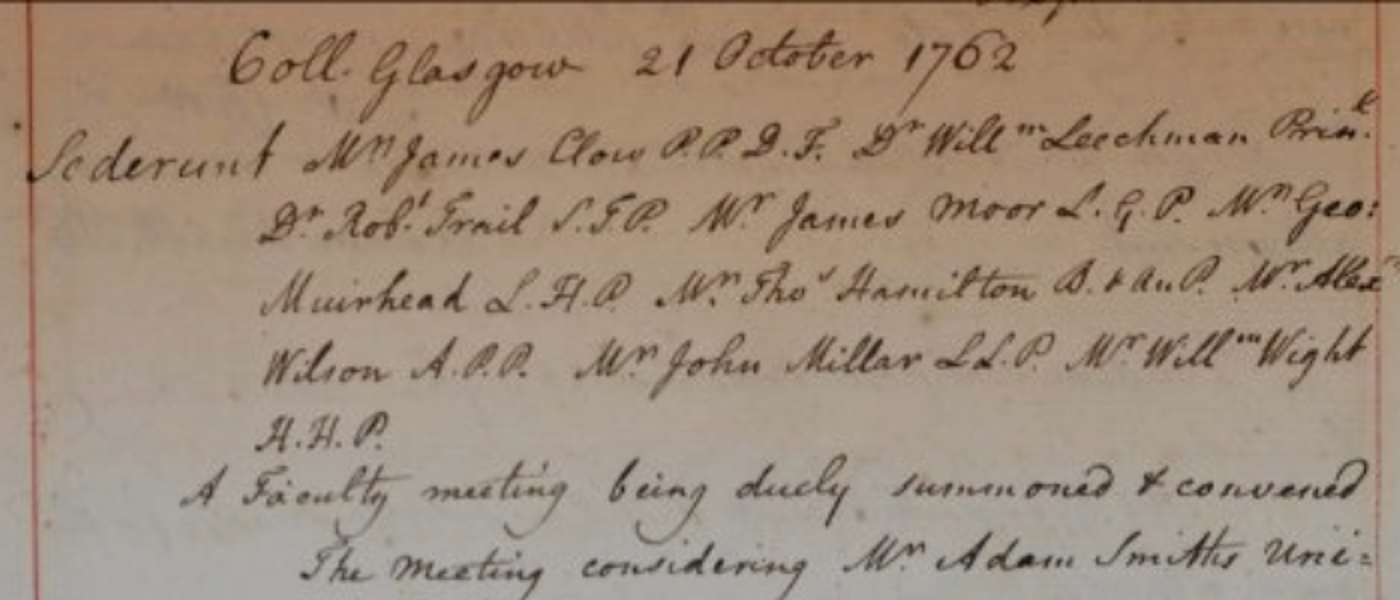 Coll. Glasgow 21 October 1762
Sederunt Mr. James Clow P.P. D.F. Dr Willm Leechman Prinll.
Dr. Robt. Trail S.T.P. Mr James Moor L.G.P. Mr. Geo:
Muirhead L.H.P. Mr. Thos Hamilton B. & An P. Mr. Alexr
Wilson A.P.P. Mr. John Millar L L.P. Mr Willm Wight
H.H.P.
A Faculty meeting being duely summoned & convened
The Meeting considering Mr. Adam Smiths Uni=